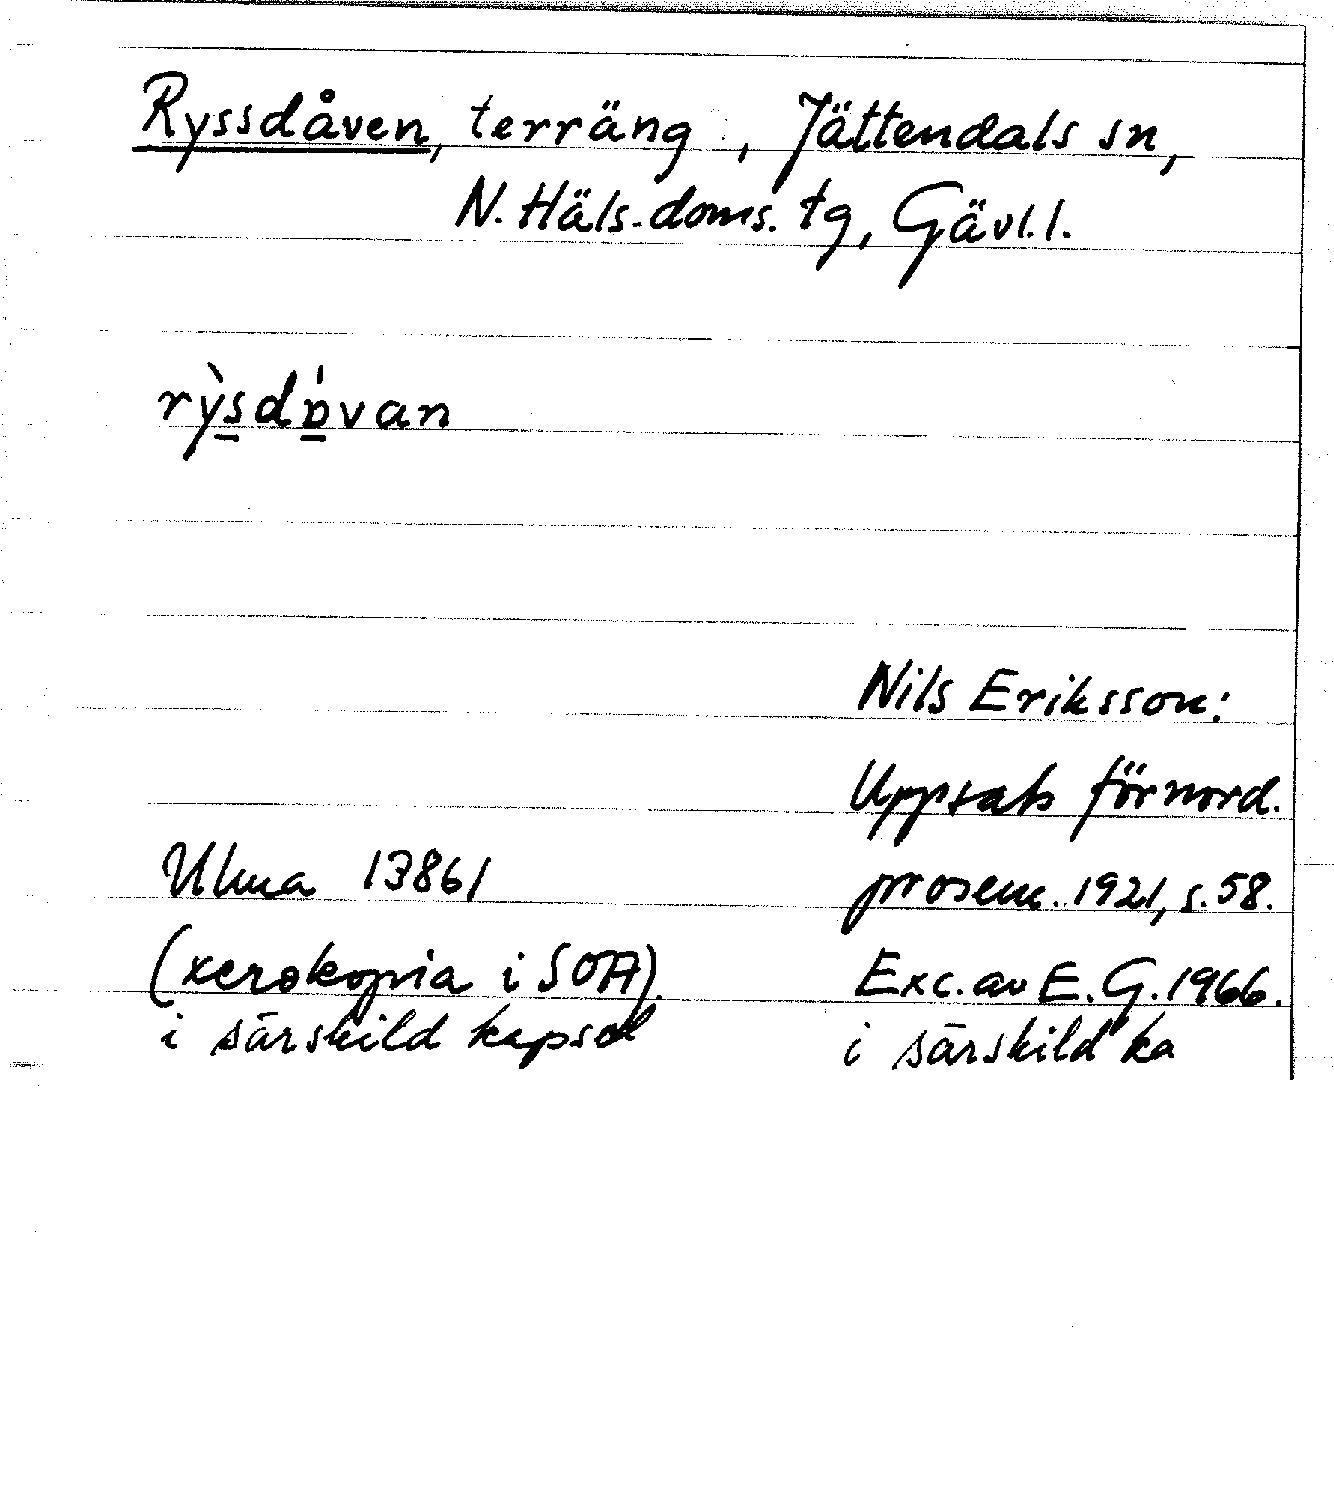 Ryssdåven, terräng, Jättendals sn,
N. Häls. doms. tg, Gävl.l.
rỳs̠dɒ̠́van
Nils Eriksson:
Uppsats för nord.
Ulma 13861
prosem. 1921, s. 58.
(xerokopia i SOA).
Exc. av E. G. 1966.
i särskild kapsel
i särskild ka